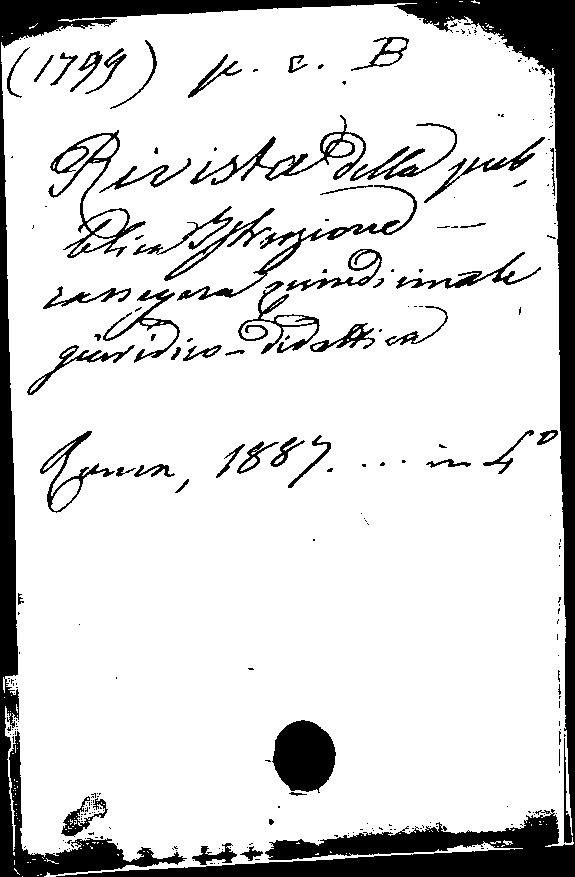 (1799) p. c. B
Rivista della pub-
blica Istruzione —
rassegna quindicinale
giuridico-didattica
Roma, 1887. ... in 4°